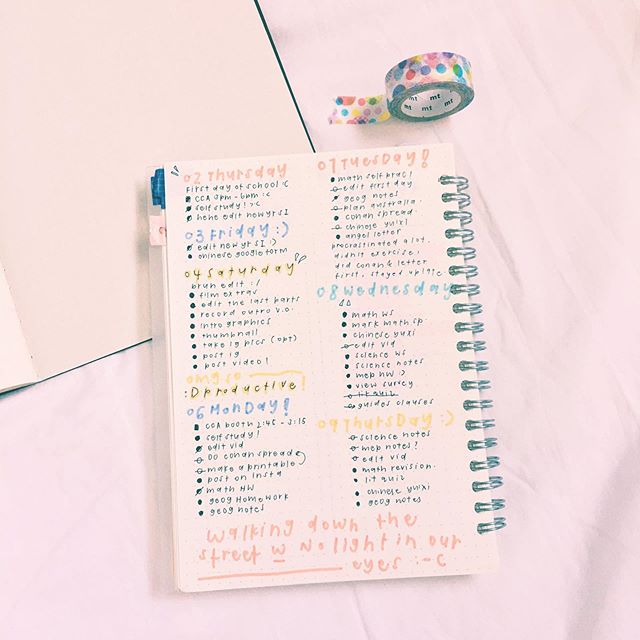 02 Thursday
first day of school :c
CCA 3pm - 6pm :c
self study! >:c
hehe edit new yrs!
03 Friday :)
edit new yrs! :)
chinese google form
04 Saturday
brun edit :/
film extras
edit the last parts
record outro v.o.
intro graphics
thumbnail
take ig pics (opt)
post ig
post video!
omg so
:D productive!
06 MonDay!
CCA booth 2:45 - 3:15
self study!
edit vid
do conan spread
make a printable
post on insta
math HW
geog homework
geog notes
07 TuesDay!
math self prac!
edit first day
geog notes
plan australia
conan spread
chinese yuxi
angel letter
procrastinated a lot.
didn't exercise!
did conan & letter
first, stayed up
08 Wednesday
math ws
mark math sp
chinese yuxi
edit vid
science ws
science notes
mep hw :)
view survey
lit quiz
guides clauses
09 ThursDay :)
science notes
mep notes!
edit vid
math revision.
lit quiz
chinese yuxi
geog notes
Walking down the
street w no light in our
eyes :-c
mt
mt
mt